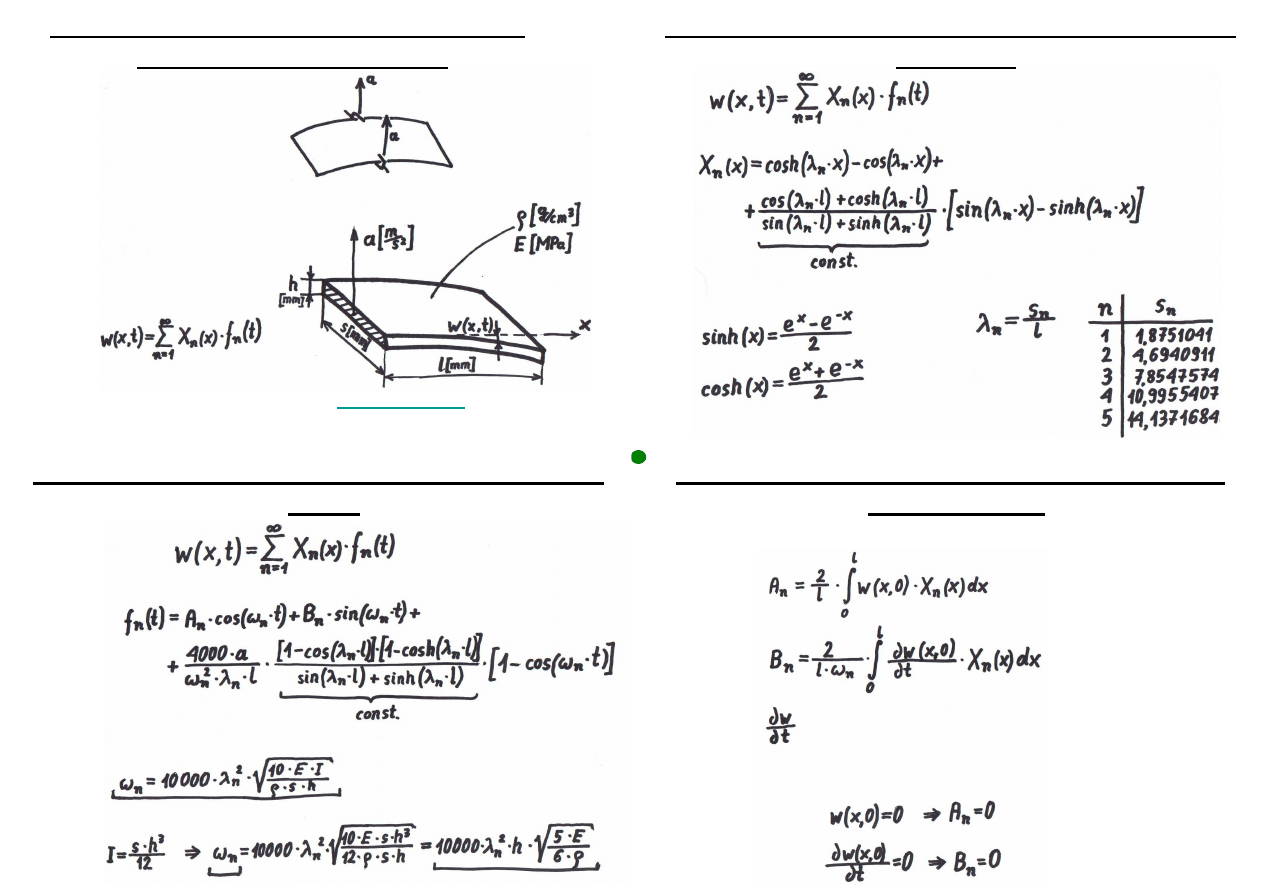 a
a
ρ [g/cm³]
E [MPa]
a [m/s²]
h
[mm]
w(x,t)
x
s[mm]
l[mm]
w(x,t)=∑_{n=1}^{∞} Xₙ(x)·fₙ(t)
w(x,t)=∑_{n=1}^{∞} Xₙ(x)·fₙ(t)
Xₙ(x)=cosh(λₙ·x)-cos(λₙ·x)+
+ (cos(λₙ·l)+cosh(λₙ·l))/(sin(λₙ·l)+sinh(λₙ·l)) ·[sin(λₙ·x)-sinh(λₙ·x)]
const.
sinh(x)=(eˣ-e⁻ˣ)/2
cosh(x)=(eˣ+e⁻ˣ)/2
λₙ=sₙ/l
n sₙ
1 1,8751041
2 4,6940911
3 7,8547574
4 10,9955407
5 14,1371684
w(x,t)=∑_{n=1}^{∞} Xₙ(x)·fₙ(t)
fₙ(t)=Aₙ·cos(ωₙ·t)+Bₙ·sin(ωₙ·t)+
+ (4000·a)/(ωₙ²·λₙ·l) · ([1-cos(λₙ·l)]·[1-cosh(λₙ·l)])/(sin(λₙ·l)+sinh(λₙ·l)) ·[1-cos(ωₙ·t)]
const.
ωₙ=10000·λₙ²·√((10·E·I)/(ρ·s·h))
I=(s·h³)/12 ⇒ ωₙ=10000·λₙ²·√((10·E·s·h³)/(12·ρ·s·h))=10000·λₙ²·h·√((5·E)/(6·ρ))
Aₙ=2/l·∫₀ˡ w(x,0)·Xₙ(x)dx
Bₙ=2/(l·ωₙ)·∫₀ˡ ∂w(x,0)/∂t·Xₙ(x)dx
∂w/∂t
w(x,0)=0 ⇒ Aₙ=0
∂w(x,0)/∂t=0 ⇒ Bₙ=0